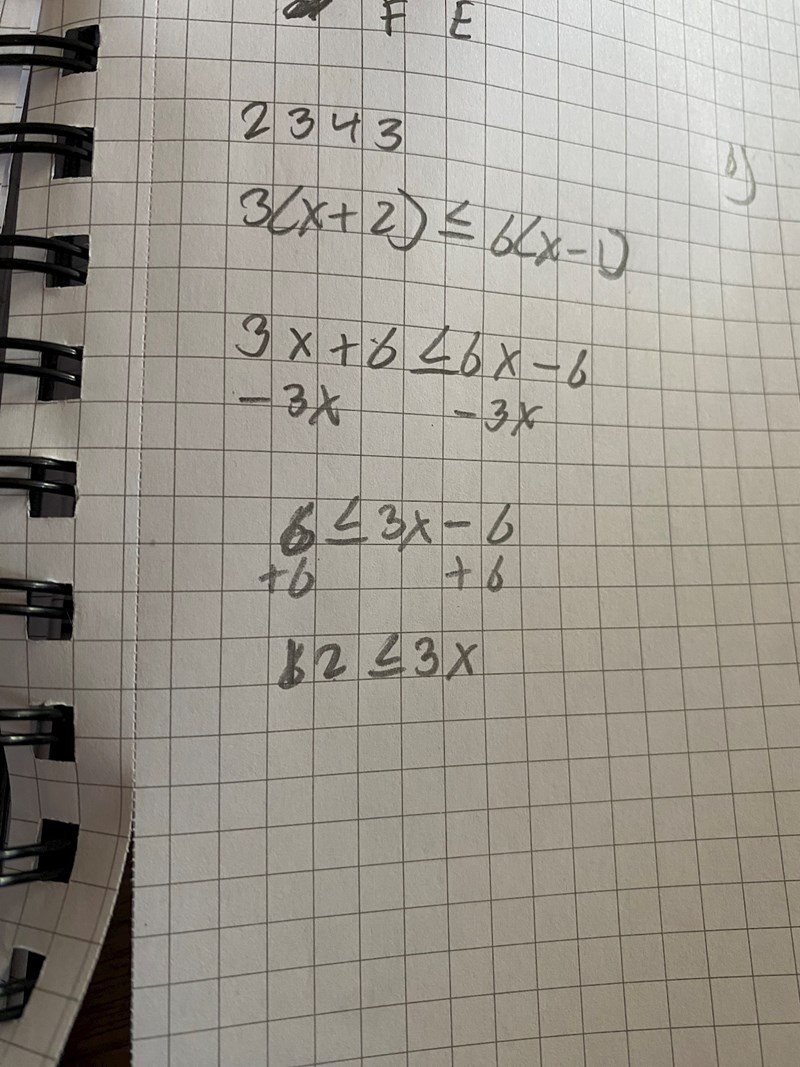 F E
2343
3(x+2) ≤ 6(x-1)
b)
3x+6 ≤ 6x-6
-3x -3x
6 ≤ 3x-6
+6 +6
12 ≤ 3x